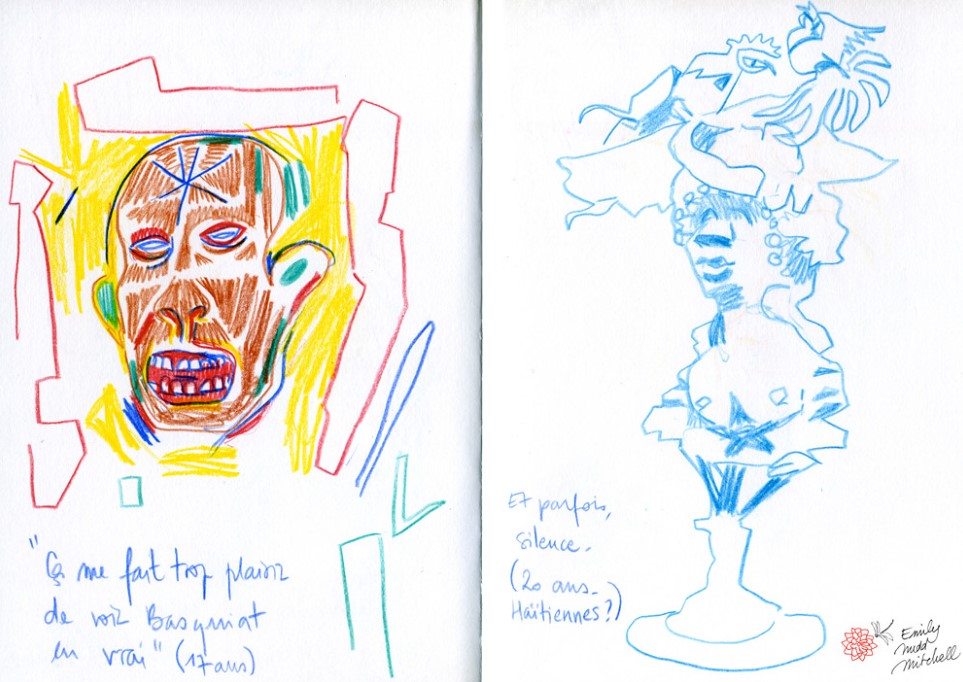 "Ça me fait trop plaisir
de voir Basquiat
en vrai" (17 ans)
Et parfois,
silence.
(20 ans.
Haïtiennes?)
Emily
Nudd
Mitchell